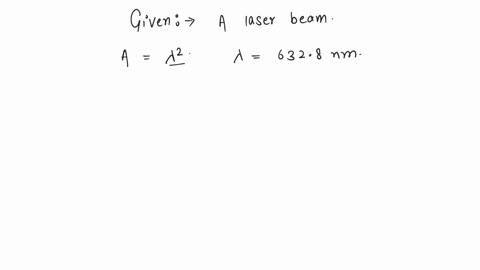 Given:→ A laser beam.
A = λ². λ = 632.8 nm.